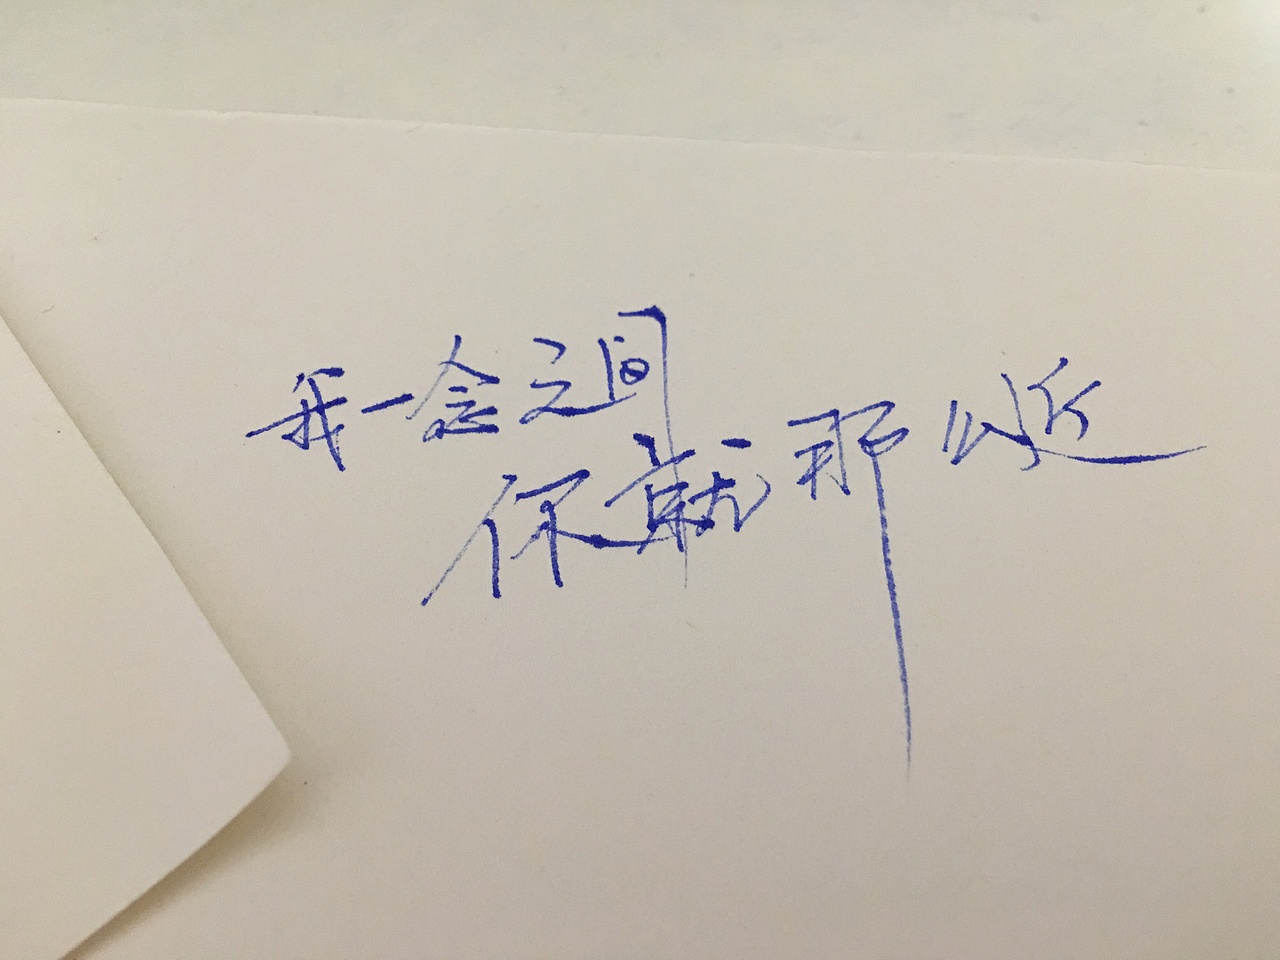 我一念之间
你就那么近